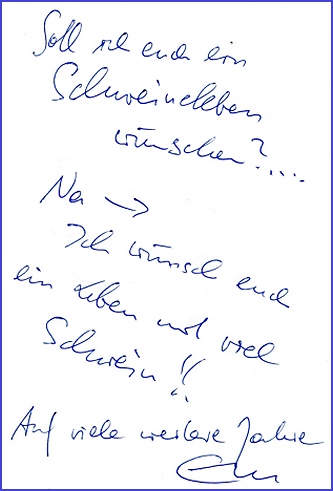 Soll ich euch ein
Schweineleben
wünschen?....
Na →
Ich wünsch euch
ein Leben mit viel
Schwein!!
Auf viele weitere Jahre